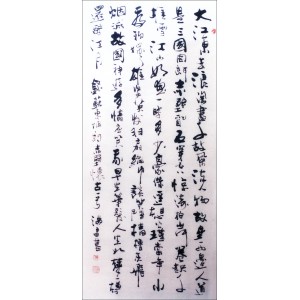 大江東去浪淘盡千古風流人物故壘西邊人道
是三國周郎赤壁亂石濤拍岸捲起千
堆雪江山如畫一時多少豪傑遙想公瑾當年小
喬初嫁了雄姿英發羽扇綸巾談笑間檣櫓
烟滅故國神遊多情應笑我早生華髮人生如夢一樽
還酹江月 蘇東坡詞赤壁懷古